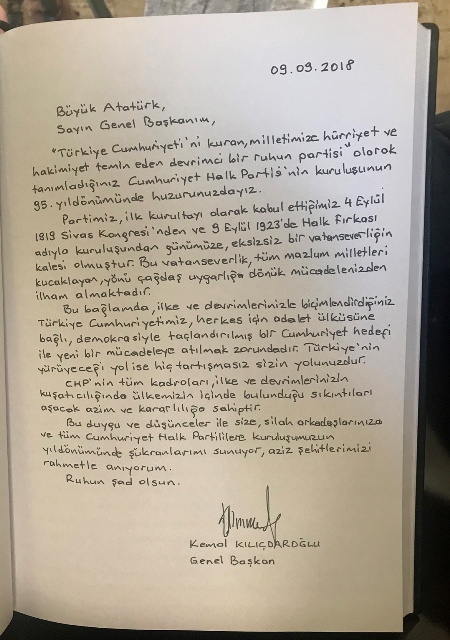 09.09.2018
Büyük Atatürk,
Sayın Genel Başkanım,
"Türkiye Cumhuriyeti'ni kuran, milletimize hürriyet ve
hakimiyet temin eden devrimci bir ruhun partisi" olarak
tanımladığınız Cumhuriyet Halk Partisi'nin kuruluşunun
95. yıldönümünde huzurunuzdayız.
Partimiz, ilk kurultayı olarak kabul ettiğimiz 4 Eylül
1919 Sivas Kongresi'nden ve 9 Eylül 1923'de Halk Fırkası
adıyla kuruluşundan günümüze, eksizsiz bir vatanseverliğin
kalesi olmuştur. Bu vatanseverlik, tüm mazlum milletleri
kucaklayan, yönü çağdaş uygarlığa dönük mücadelenizden
ilham almaktadır.
Bu bağlamda, ilke ve devrimlerinizle biçimlendirdiğiniz
Türkiye Cumhuriyetimiz, herkes için adalet ülküsüne
bağlı, demokrasiyle taçlandırılmış bir Cumhuriyet hedefi
ile yeni bir mücadeleye atılmak zorundadır. Türkiye'nin
yürüyeceği yol ise hiç tartışmasız sizin yolunuzdur.
CHP'nin tüm kadroları, ilke ve devrimlerinizin
kuşatıcılığında ülkemizin içinde bulunduğu sıkıntıları
aşacak azim ve kararlılığa sahiptir.
Bu duygu ve düşünceler ile size, silah arkadaşlarınıza
ve tüm Cumhuriyet Halk Partililere kuruluşumuzun
yıldönümünde şükranlarımı sunuyor, aziz şehitlerimizi
rahmetle anıyorum.
Ruhun şad olsun.
Kemal KILIÇDAROĞLU
Genel Başkan